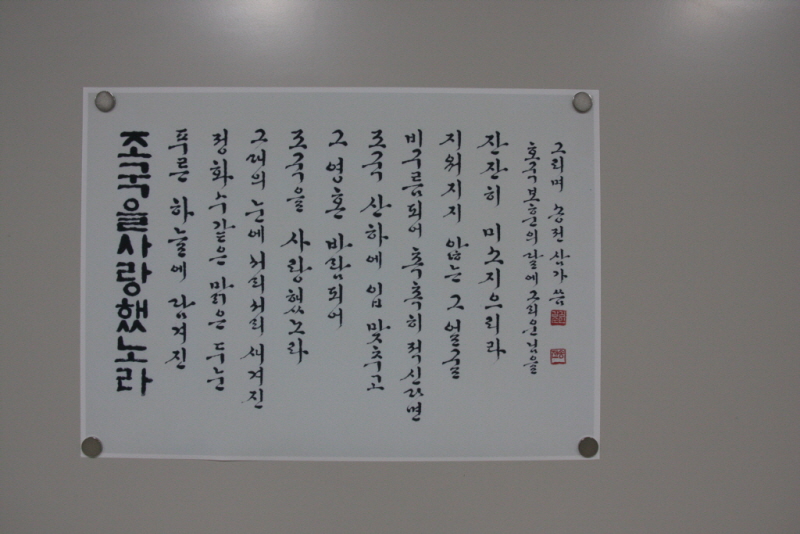 조국을사랑했노라
푸른 하늘에 담겨진
정화수같은 맑은 두눈
그대의 눈에 서리서리 새겨진
조국을 사랑했노라
그 영혼 바람되어
조국 산하에 입 맞추고
비구름되어 촉촉히
지워지지 않는 그 얼굴
잔잔히 미소지으리라
호국보훈의 달에 그리운 님을
그리며 삼가 씀